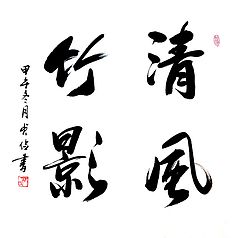 清風
竹影
甲午冬月
書